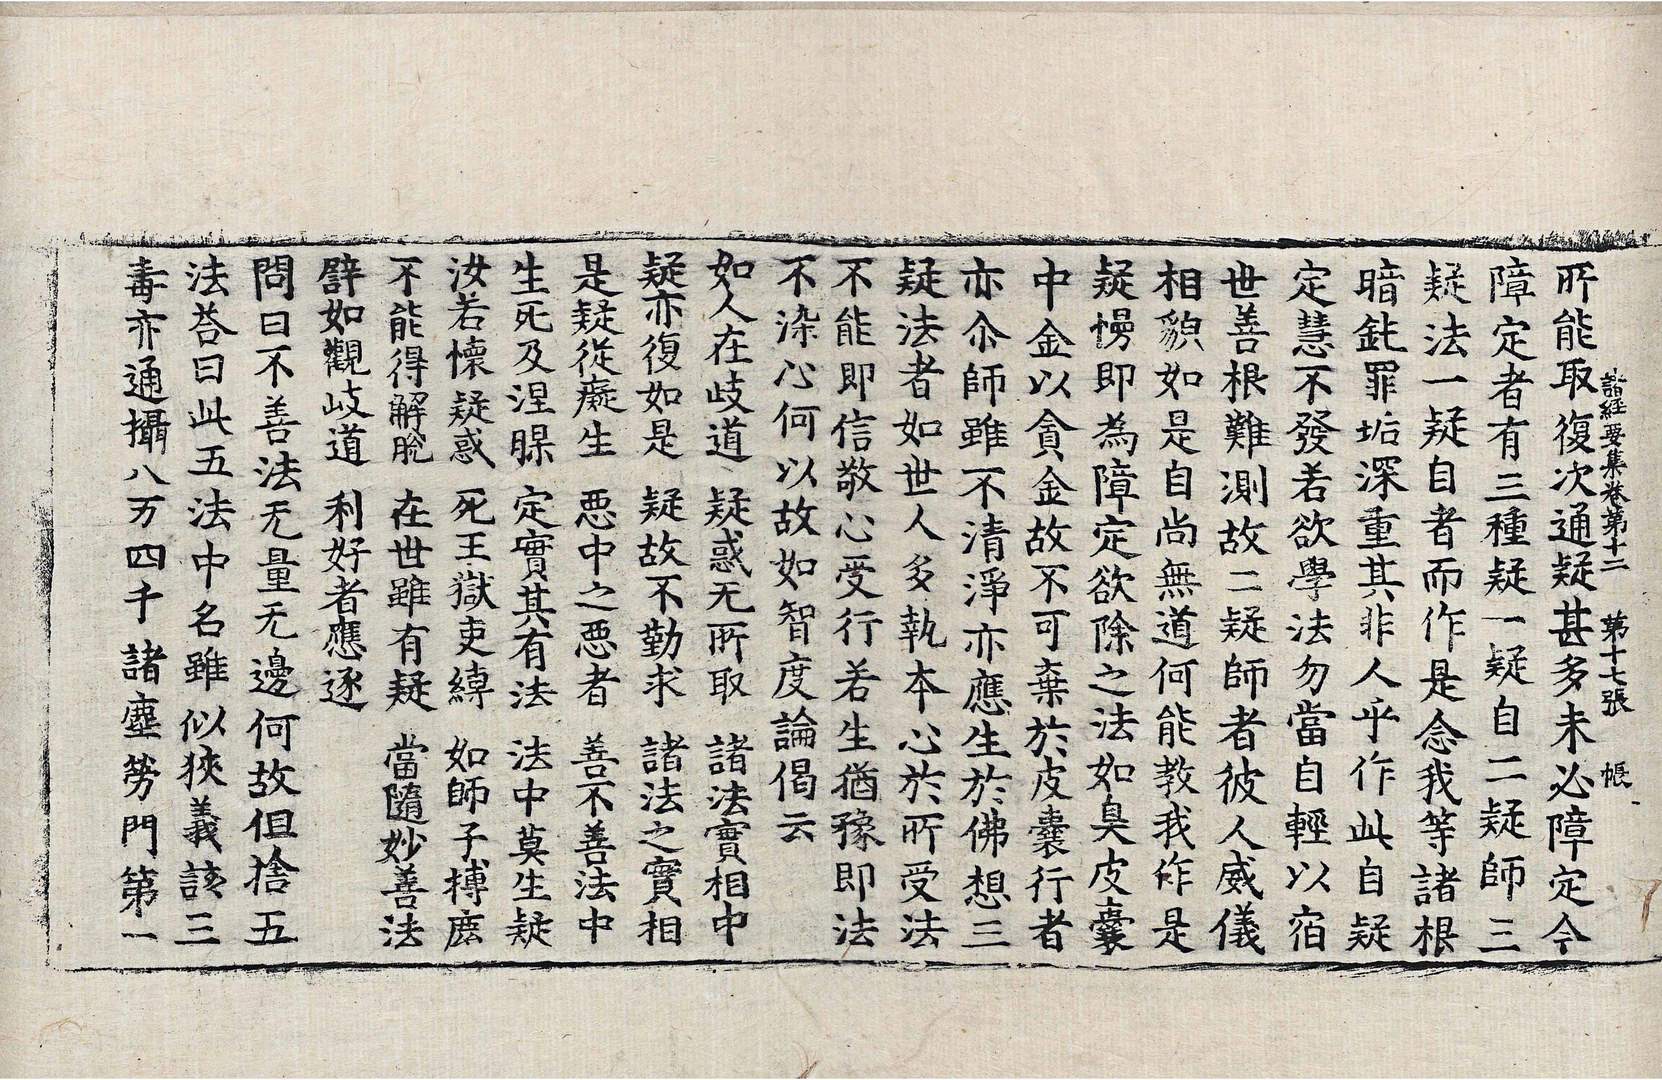 諸經要集卷第十二　第十七張　帳
所能取復次通疑甚多未必障定今
障定者有三種疑一疑自二疑師三
疑法一疑自者而作是念我等諸根
暗鈍罪垢深重其非人乎作此自疑
定慧不發若欲學法勿當自輕以宿
世善根難測故二疑師者彼人威儀
相貌如是自尚無道何能教我作是
疑慢即為障定欲除之法如臭皮囊
中金以貪金故不可棄於皮囊行者
亦尒師雖不清淨亦應生於佛想三
疑法者如世人多執本心於所受法
不能即信敬心受行若生猶豫即法
不染心何以故如智度論偈云
如人在歧道　疑惑无所取　諸法實相中
疑亦復如是　疑故不勤求　諸法之實相
是疑從癡生　惡中之惡者　善不善法中
生死及涅槃　定實其有法　法中莫生疑
汝若懷疑惑　死王獄吏縛　如師子搏鹿
不能得解脫　在世雖有疑　當隨妙善法
譬如觀歧道　利好者應逐
問曰不善法无量无邊何故但捨五
法荅曰此五法中名雖似狹義該三
毒亦通攝八万四千諸塵勞門第一